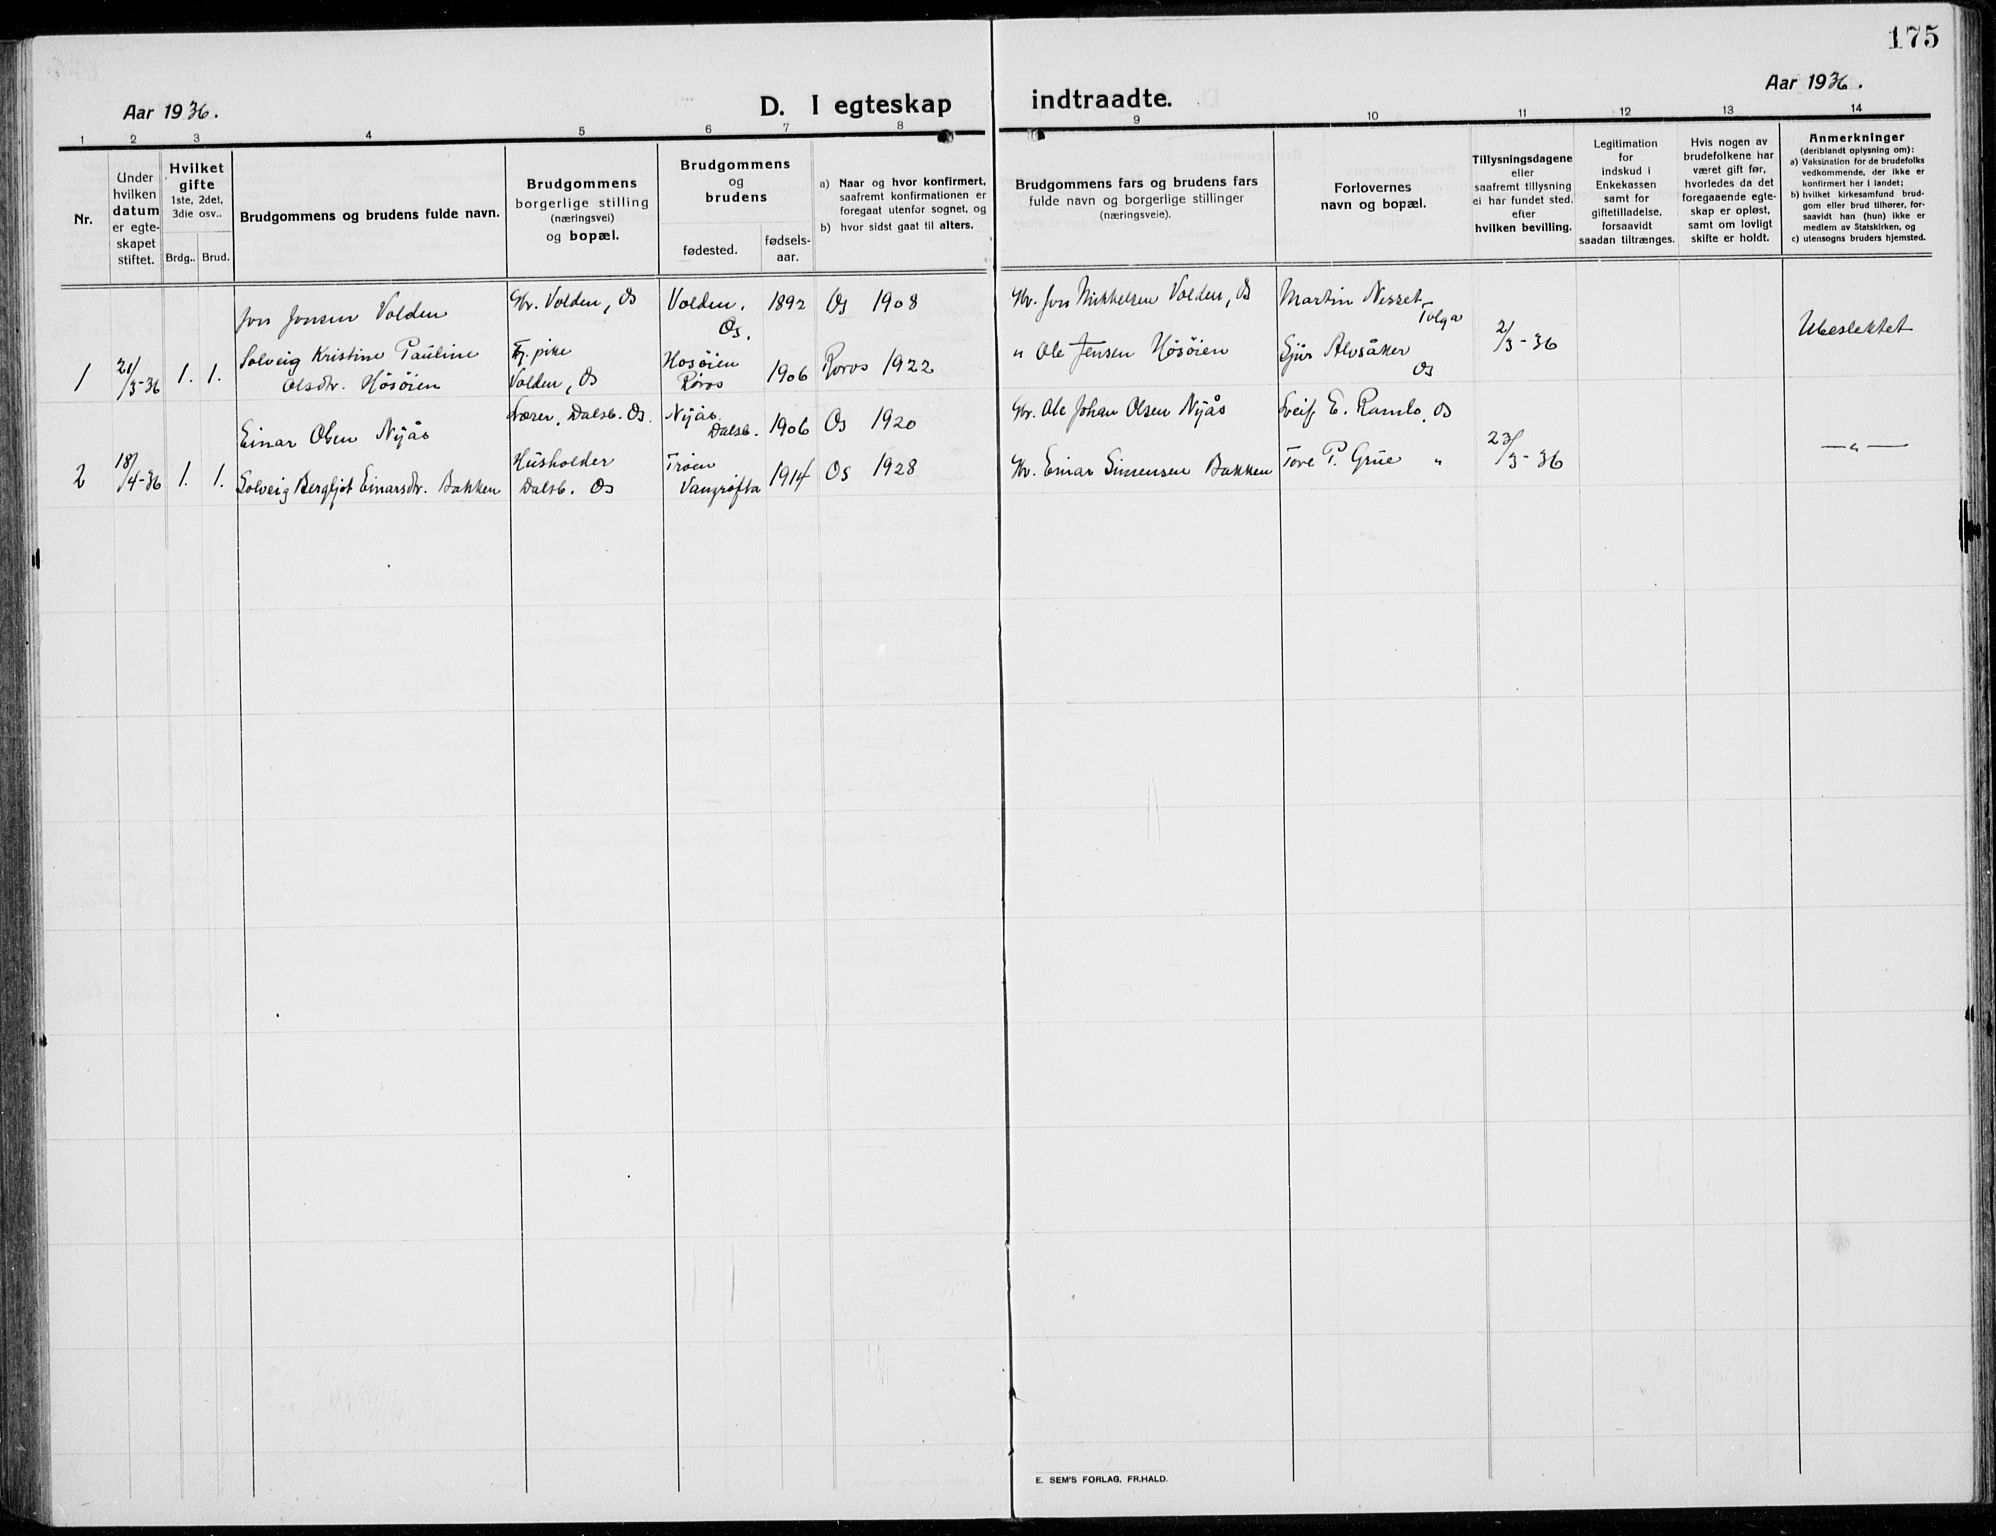 175
Aar 1936.
D. I egteskap
indtraadte.
Aar 1936.
1 2 3 4 5 6 7 8 9 10 11 12 13 14
Nr.
Under
hvilken
datum
er egte-
skapet
stiftet.
Hvilket
gifte
1ste, 2det,
3die osv..
Brdg..
Brud.
Brudgommens og brudens fulde navn.
Brudgommens
borgerlige stilling
(næringsvei)
og bopæl.
Brudgommens
og
brudens
fødested.
fødsels-
aar.
a) Naar og hvor konfirmert,
saafremt konfirmationen er
foregaat utenfor sognet, og
b) hvor sidst gaat til alters.
Brudgommens fars og brudens fars
fulde navn og borgerlige stillinger
(næringsveie).
Forlovernes
navn og bopæl.
Tillysningsdagene
eller
saafremt tillysning
ei har fundet sted.
efter
hvilken bevilling.
Legitimation
for
indskud i
Enkekassen
samt for
giftetilladelse,
forsaavidt
saadan tiltrænges.
Hvis nogen av
brudefolkene har
været gift før,
hvorledes da det
foregaaende egte-
skap er opløst,
samt om lovligt
skifte er holdt.
Anmerkninger
(deriblandt oplysning om):
a) Vaksination for de brudefolks
vedkommende, der ikke er
konfirmert her i landet;
b) hvilket kirkesamfund brud-
gom eller brud tilhører, for-
saavidt han (hun) ikke er
medlem av Statskirken, og
c) utensogns bruders hjemsted.
1
21/3-36
1. 1.
Jon Jonsen Volden
Solveig Kristine Pauline
Olsdtr. Høsøien
Gbr. Volden, Os
Tj. pike
Volden, Os
Volden,
Os.
Høsøien
Røros
1892
1906
Os 1908
Røros 1922
Gbr. Jon Mikkelsen Volden, Os
" Ole Jensen Høsøien
Martin Nesset,
Tolga
Sjur Alvsåker
Os
2/3-36
Ubeslektet
2
18/4-36
1. 1.
Einar Olsen Nyås
Solveig Bergljot Einarsdtr. Bakken
Dalsb. Os.
Husholder
Dalsb. Os
Nyås
Dalsb.
Trøen
Vangrøfta
1906
1914
Os 1920
Os 1928
Gbr. Ole Johan Olsen Nyås
Gbr. Einar Simensen Bakken
Leif E. Ramlo, Os
Tore P. Grue "
23/3-36
— " —
E. SEM'S FORLAG, FR.HALD.